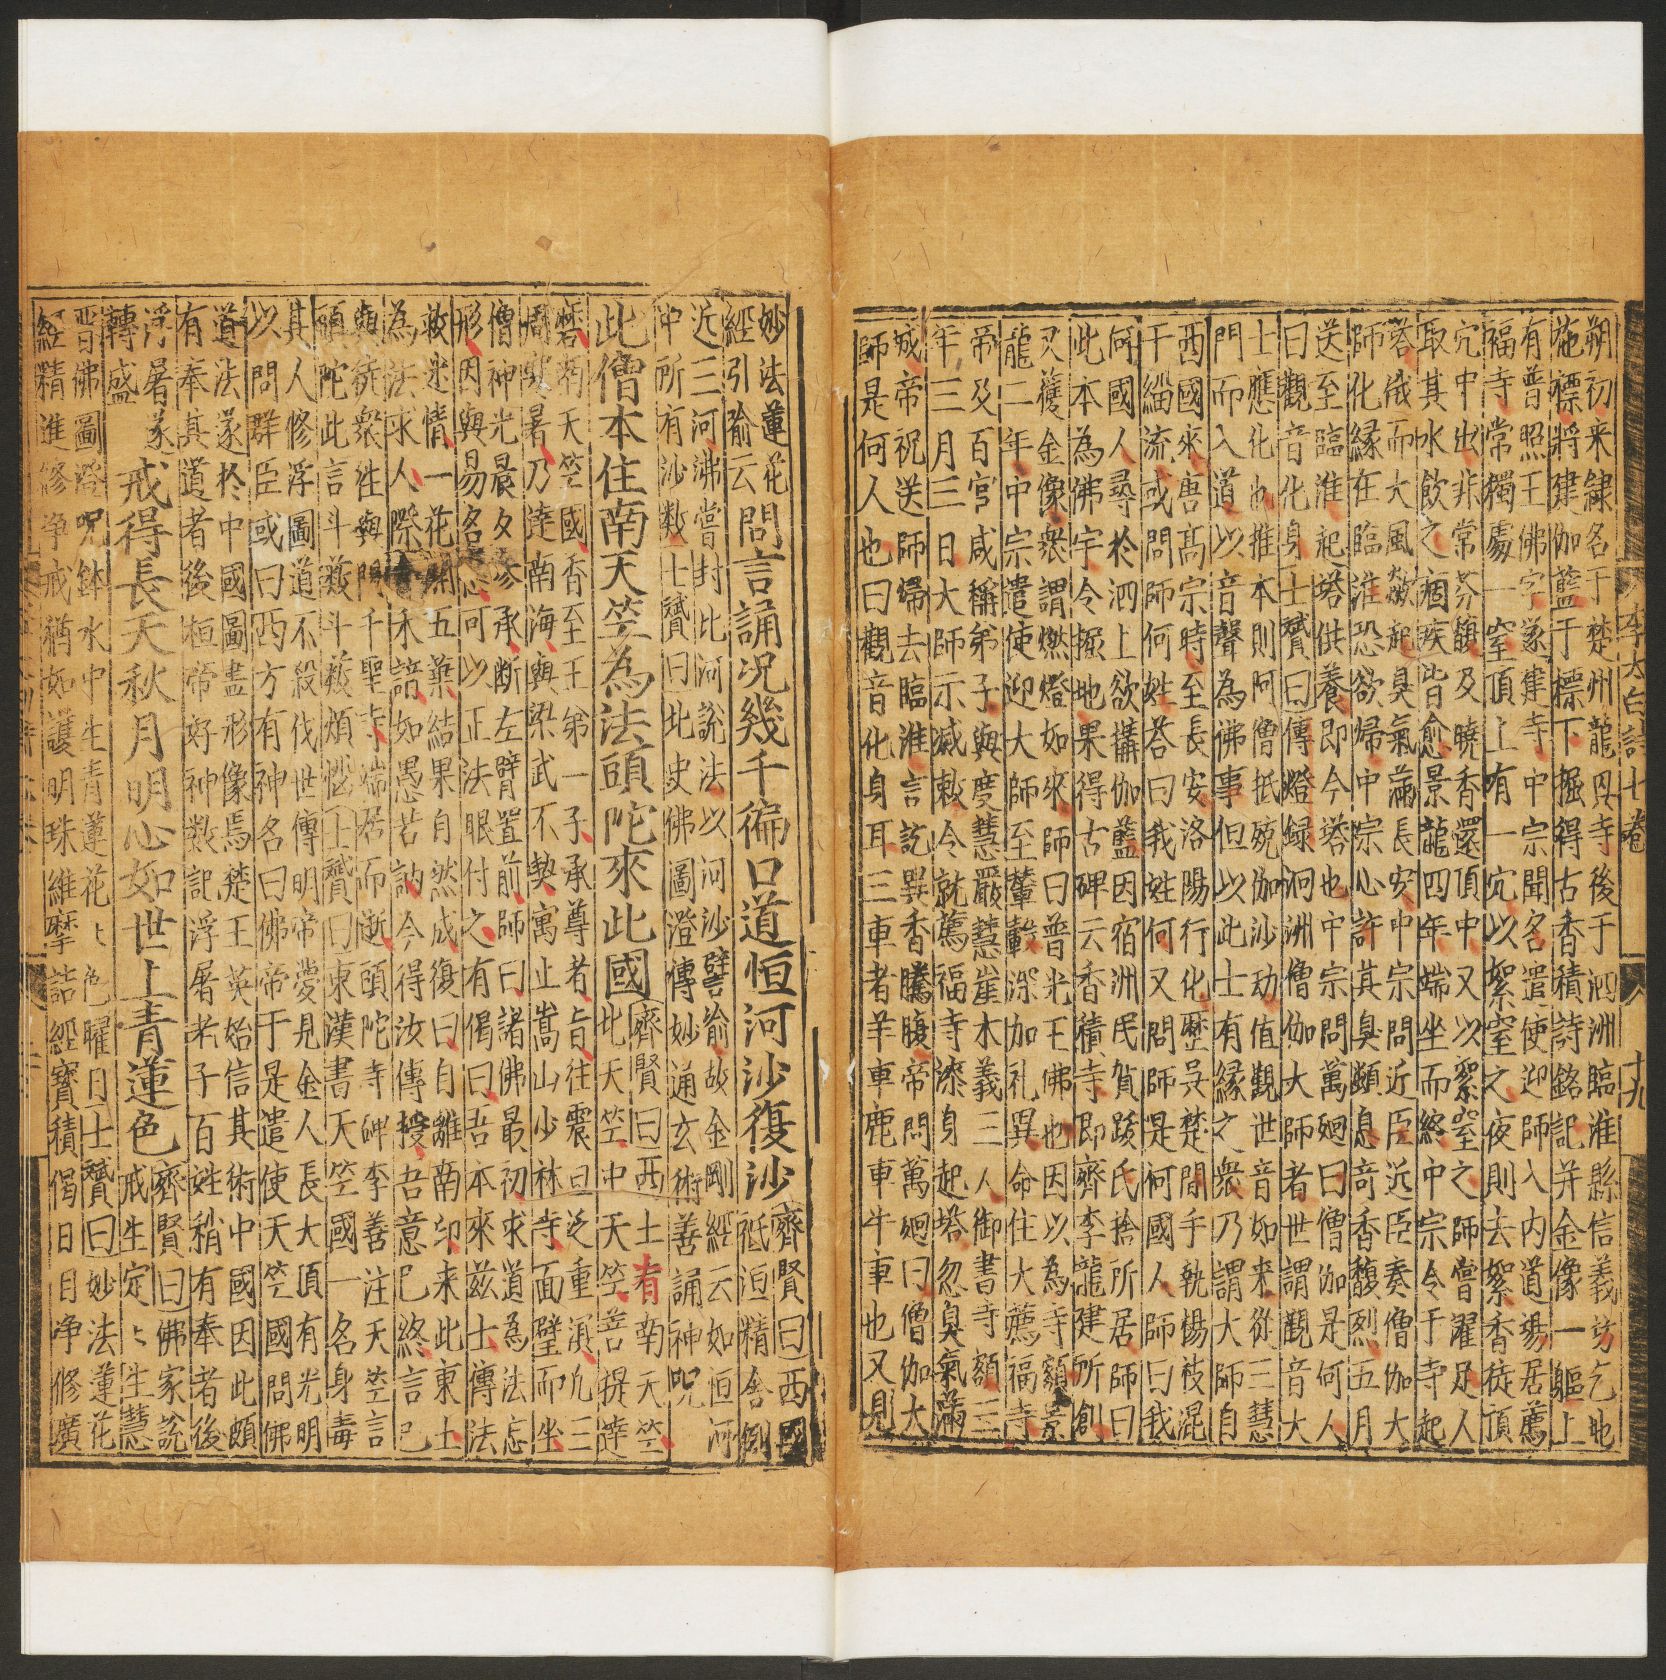 李太白詩十卷 十九
朔初来隸名于楚州龍興寺後于泗洲臨淮縣信義坊乞地
施標將建伽藍于標下掘得古香積詩銘記并金像一軀上
有普照王佛字遂建寺中宗聞名遣使迎師入内道場居薦
福寺常獨處一室頂上有一穴以絮窒之夜則去絮香從頂
穴中出非常芬馥及曉香還頂中又以絮窒之師嘗濯足人
取其水飲之痼疾皆愈景龍四年端坐而終中宗令于寺起
塔俄而大風歘起臭氣滿長安中宗問近臣近臣奏僧伽大
師化緣在臨淮恐欲歸中宗心許其臭頓息奇香馥烈五月
送至臨淮起塔供養即今塔也中宗問萬廻曰僧伽是何人
曰觀音化身士贇曰傳燈録泗洲僧伽大師者世謂觀音大
士應化也推本則阿僧抵殑伽沙劫值觀世音如来從三慧
門而入道以音聲為佛事但以此土有緣之衆乃謂大師自
西國來唐高宗時至長安洛陽行化歷吳楚間手執楊枝混
于緇流或問師何姓荅曰我姓何又問師是何國人師曰我
何國人尋於泗上欲搆伽藍因宿洲民賀跋氏捨所居師曰
此本為佛宇令掘地果得古碑云香積寺即齊李龍建所創
又獲金像衆謂燃燈如來師曰普光王佛也因以為寺額景
龍二年中宗遣使迎大師至輦轂深加礼異命住大薦福寺
帝及百官咸稱弟子與度慧嚴慧崖木義三人御書寺額三
年三月三日大師示滅敕令就薦福寺漆身起塔忽臭氣滿
城帝祝送師歸去臨淮言訖異香騰馥帝問萬廻曰僧伽大
師是何人也曰觀音化身耳三車者羊車鹿車牛車也又見
妙法蓮花
經引喻云
問言誦況幾千徧口道恒河沙復沙
齊賢曰西國
祗洹精舍側
近三河沸嘗封此河說法以河沙譬喻故金剛經云如恒河
中所有沙數士贇曰北史佛圖澄傳妙通玄術善誦神呪
此僧本住南天竺為法頭陀來此國
齊賢曰西土有南天竺
此天竺中天竺菩提達
磨南天竺國香至王第一子承尊者旨往震旦泛重溟凢三
周寒暑乃達南海與梁武不契寓止嵩山少林寺面壁而坐
僧神光晨夕參承断左臂置前師曰諸佛最初求道為法忘
形因與易名心可以正法眼付之有偈曰吾本來兹土傳法
救迷情一花開五葉結果自然成復曰自離南印来此東土
為法求人際會未諧如愚若訥今得汝傳授吾意已終言已
與徒衆往與門千聖寺端居而逝頭陀寺碑李善注天竺言
頭陀此言斗薮斗薮煩惱士贇曰東漢書天竺國一名身毒
其人修浮圖道不殺伐世傳明帝夢見金人長大頂有光明
以問群臣或曰西方有神名曰佛帝于是遣使天竺國問佛
道法遂於中國圖畫形像焉楚王英始信其術中國因此頗
有奉其道者後桓帝好神數詔浮屠老子百姓稍有奉者後
浮屠遂
轉盛
戒得長天秋月明心如世上青蓮色
齊賢曰佛家說
戒生定定生慧
晋佛圖澄呪鉢水中生青蓮花花色曜日士贇曰妙法蓮花
經精進修浄戒猶如護明珠維摩詰經寳積偈曰目浄修廣